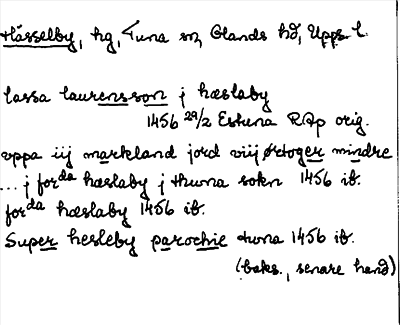 Hässelby, hg, Tuna sn, Olands hd, Upps. l.
lassa laurensson j hæslaby
1456 29/2 Estuna RAp orig.
uppa iij markland jord viij ørtoger mindre
... j forda hæslaby j thuna sokn 1456 ib.
forda hæslaby 1456 ib.
Super hesleby parochie tuna 1456 ib.
(baks., senare hand)